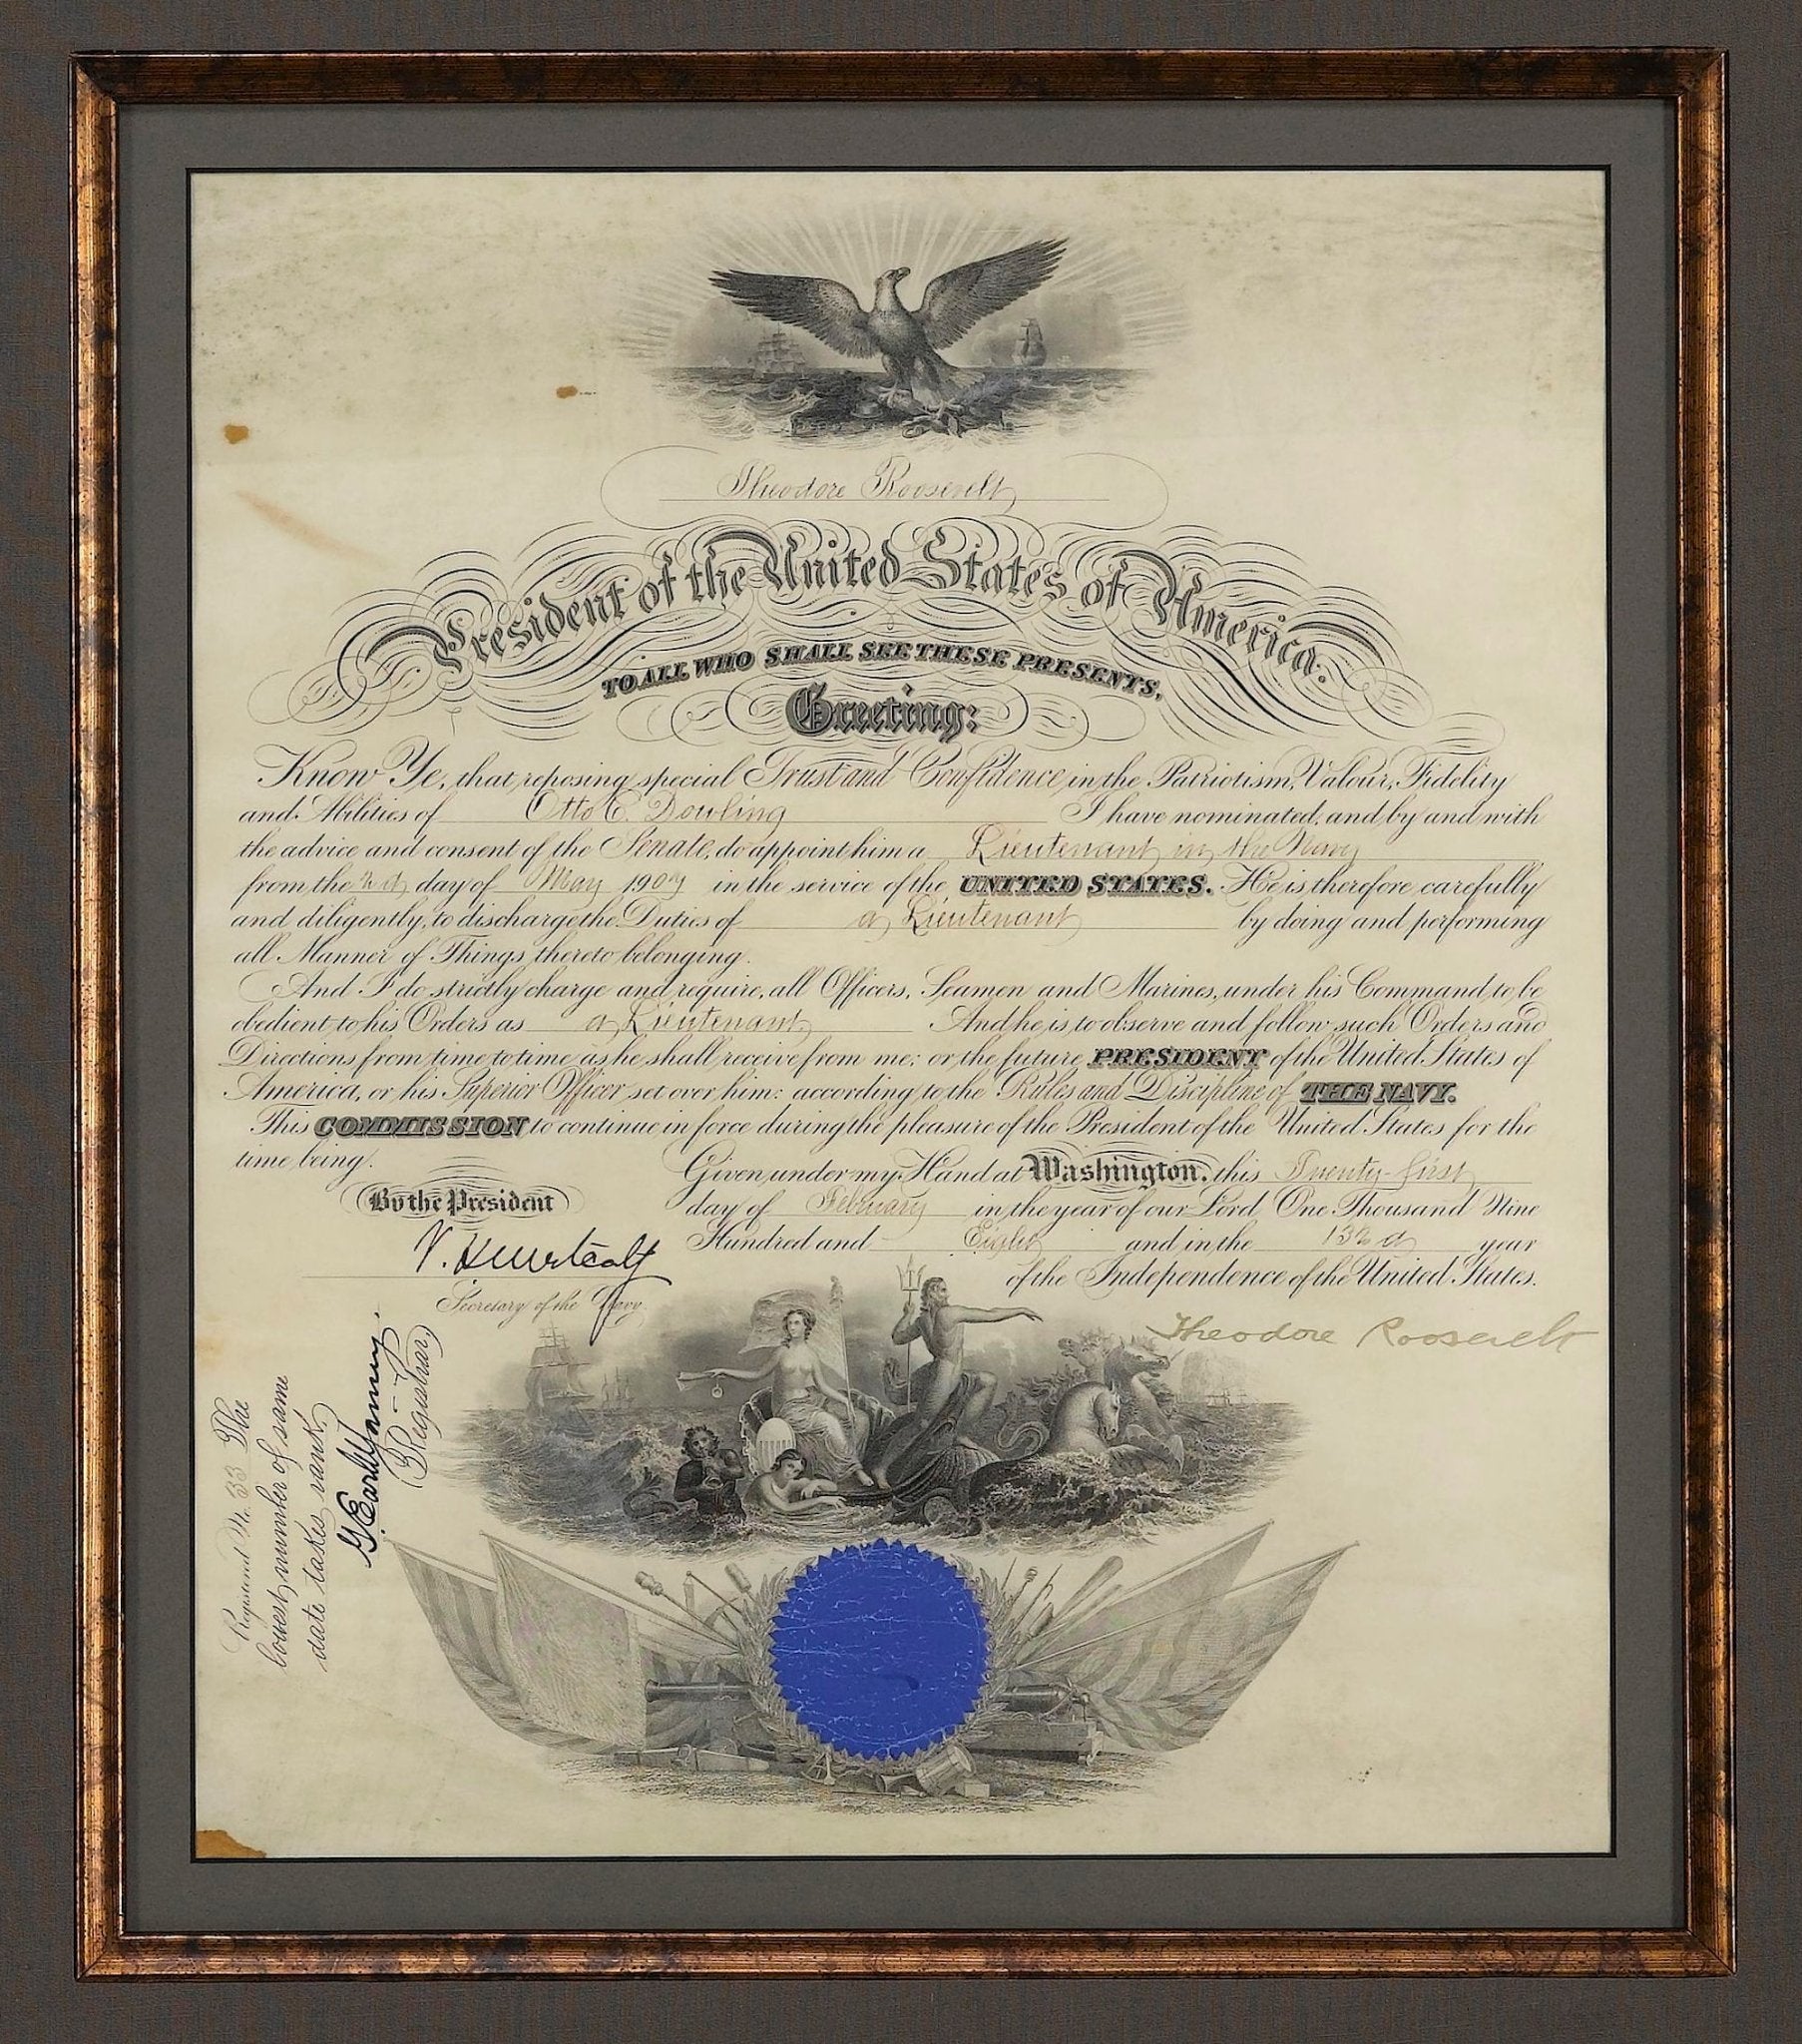 Theodore Roosevelt,
President of the United States of America.
TO ALL WHO SHALL SEE THESE PRESENTS,
Greeting:
Know Ye, that, reposing special Trust and Confidence in the Patriotism, Valour, Fidelity
and Abilities of Otto C. Dowling I have nominated, and by and with
the advice and consent of the Senate, do appoint him a Lieutenant in the Navy
from the 2d day of May 1907 in the service of the UNITED STATES. He is therefore carefully
and diligently to discharge the Duties of a Lieutenant by doing and performing
all Manner of Things thereto belonging.
And I do strictly charge and require all Officers, Seamen and Marines, under his Command to be
obedient to his Orders as a Lieutenant. And he is to observe and follow such Orders and
Directions from time to time as he shall receive from me; or the future PRESIDENT of the United States of
America, or his Superior Officer set over him: according to the Rules and Discipline of THE NAVY.
This COMMISSION to continue in force during the pleasure of the President of the United States for the
time being.
Given under my Hand at Washington, this Twenty-first
day of February in the year of our Lord One Thousand Nine
Hundred and Eight and in the 132d year
of the Independence of the United States.
By the President
V. H. Metcalf
Secretary of the Navy.
Theodore Roosevelt
Registered No. 33 The
lowest number of same
date takes rank.
Registrar.